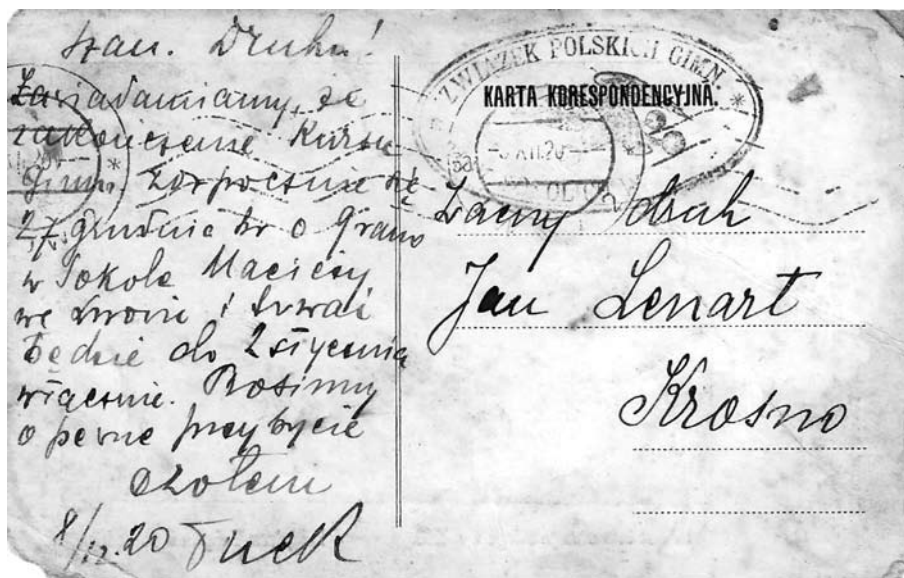 Szan. Druhu!
Zawiadamiamy, że
zakończenie Kursu
Gimn. rozpocznie się
27 grudnia br o 9 rano
w Sokole Macierzy
we Lwowie i trwać
będzie do 2 stycznia
włącznie. Prosimy
o pewne przybycie
Czołem
8/12.20
ZWIĄZEK POLSKICH GIMN
KARTA KORESPONDENCYJNA.
XII.20
Druh
Jan Lenart
Krosno